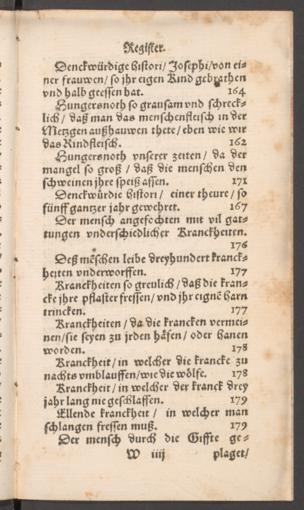 Register.
Denckwürdige histori/ Josephi/ von ei-
ner frauwen/ so jhr eigen Kind gebrathen
vnd halb geessen hat. 164
Hungersnoth so grausam vnd schreck-
lich/ daß man das menschenfleisch in der
Metzgen außhauwen thete/ eben wie wir
das Rindfleisch. 162
Hungersnoth vnserer zeiten/ da der
mangel so groß/ daß die menschen den
schweinen jhre speiß assen. 171
Denckwürdie histori/ einer theure/ so
fünff gantzer jahr gewehret. 167
Der mensch angefochten mit vil gat-
tungen vnderschiedlicher Kranckheiten.
176
Deß mẽschen leibe dreyhundert kranck-
heiten vnderworffen. 177
Kranckheiten so greulich/ daß die kran-
cke jhre pflaster fressen/ vnd jhr eignẽ harn
trincken. 177
Kranckheiten/ da die krancken vermei-
nen/ sie seyen zu jrden häfen/ oder hanen
worden. 178
Kranckheit/ in welcher die krancke zu
nachts vmblauffen/ wie die wölfe. 178
Kranckheit/ in welcher der kranck drey
jahr lang nie geschlaffen. 179
Ellende kranckheit/ in welcher man
schlangen fressen muß. 179
Der mensch durch die Giffte ge-
W iiij plaget/